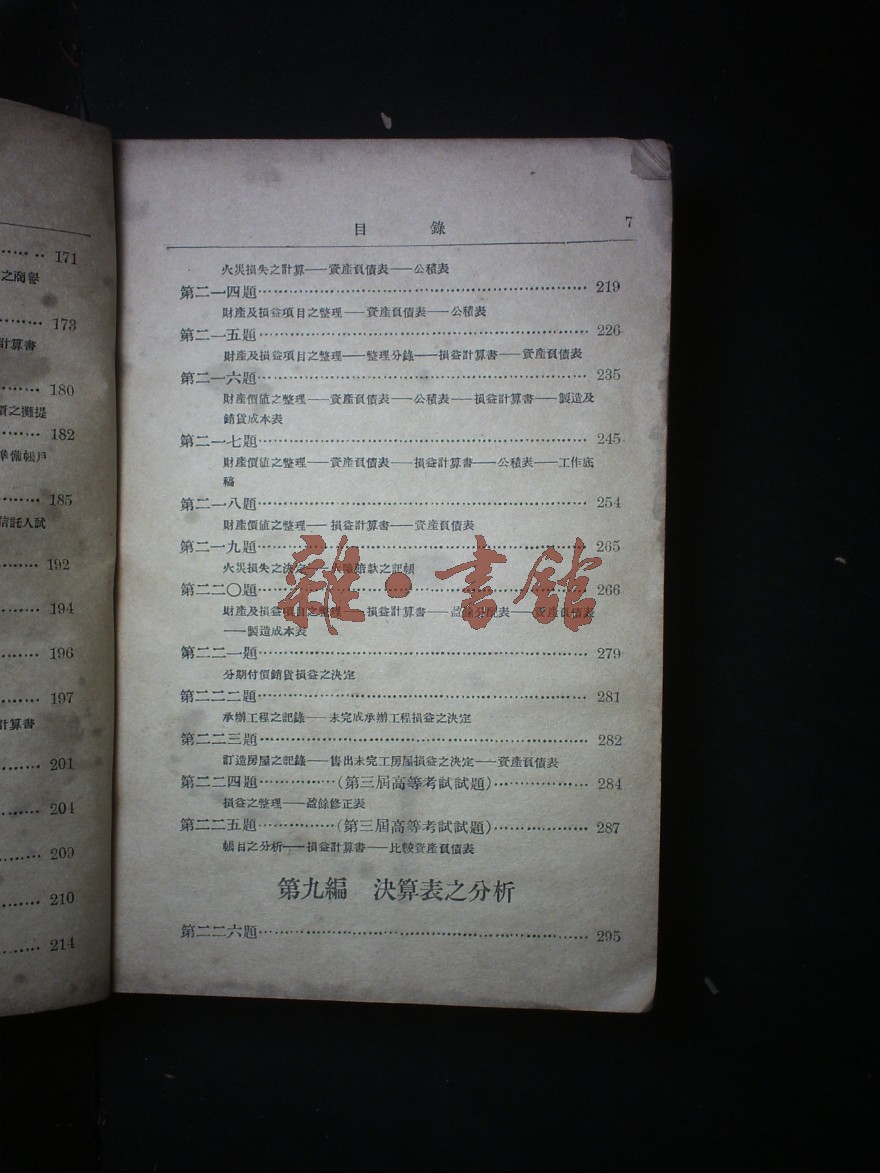 171
之商譽
173
計算書
180
價之攤提
182
準備帳戶
185
信託人試
192
194
196
197
計算書
201
204
209
210
214
目 錄 7
火災損失之計算——資產負債表——公積表
第二一四題 219
財產及損益項目之整理——資產負債表——公積表
第二一五題 226
財產及損益項目之整理——整理分錄——損益計算書——資產負債表
第二一六題 235
財產價值之整理——資產負債表——公積表——損益計算書——製造及
銷貨成本表
第二一七題 245
財產價值之整理——資產負債表——損益計算書——公積表——工作底
稿
第二一八題 254
財產價值之整理——損益計算書——資產負債表
第二一九題 265
火災損失之決定——火險賠款之記帳
第二二〇題 266
財產及損益項目之整理——損益計算書——盈餘分配表——資產負債表
——製造成本表
第二二一題 279
分期付價銷貨損益之決定
第二二二題 281
承辦工程之記錄——未完成承辦工程損益之決定
第二二三題 282
訂造房屋之記錄——售出未完工房屋損益之決定——資產負債表
第二二四題……………(第三屆高等考試試題)……………… 284
損益之整理——盈餘修正表
第二二五題……………(第三屆高等考試試題)……………… 287
帳目之分析——損益計算書——比較資產負債表
第九編 決算表之分析
第二二六題 295
雜·書館